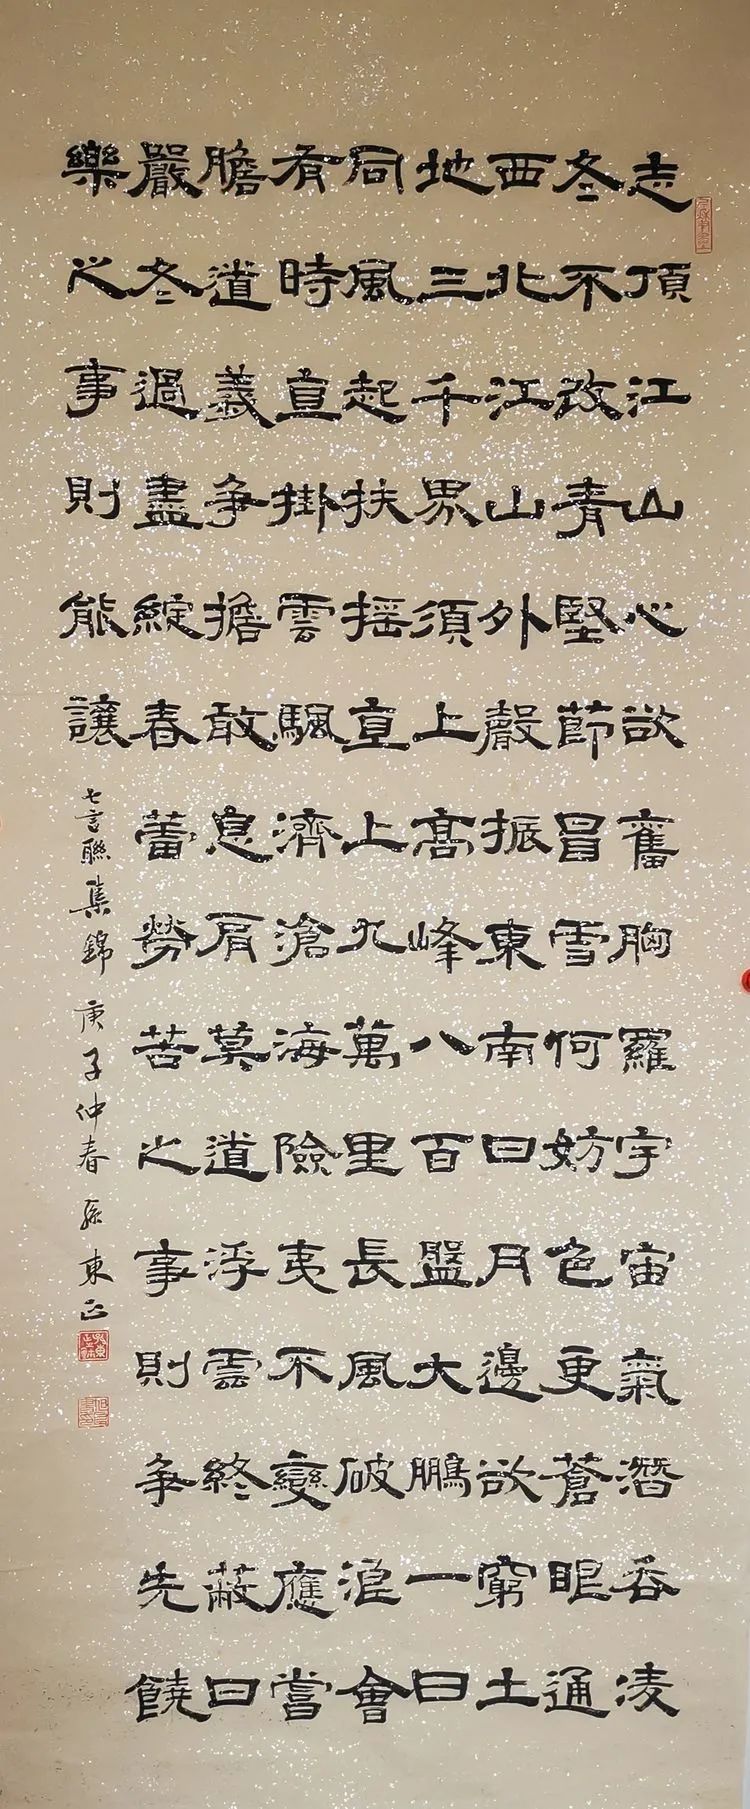 志頂江山心欲奮胸羅宇宙氣潛吞凌
冬不改青堅節冒雪何妨色更蒼眼通
西北江山外聲振東南日月邊欲窮土
地三千界須上高峰八百盤大鵬一日
同風起扶搖直上九萬里長風破浪會
有時直掛雲颿濟滄海險夷不變應嘗
膽道義爭擔敢息肩莫道浮雲終蔽日
嚴冬過盡綻春蕾勞苦之事則爭先饒
樂之事則能讓
七言聯集錦 庚子仲春 孫東正